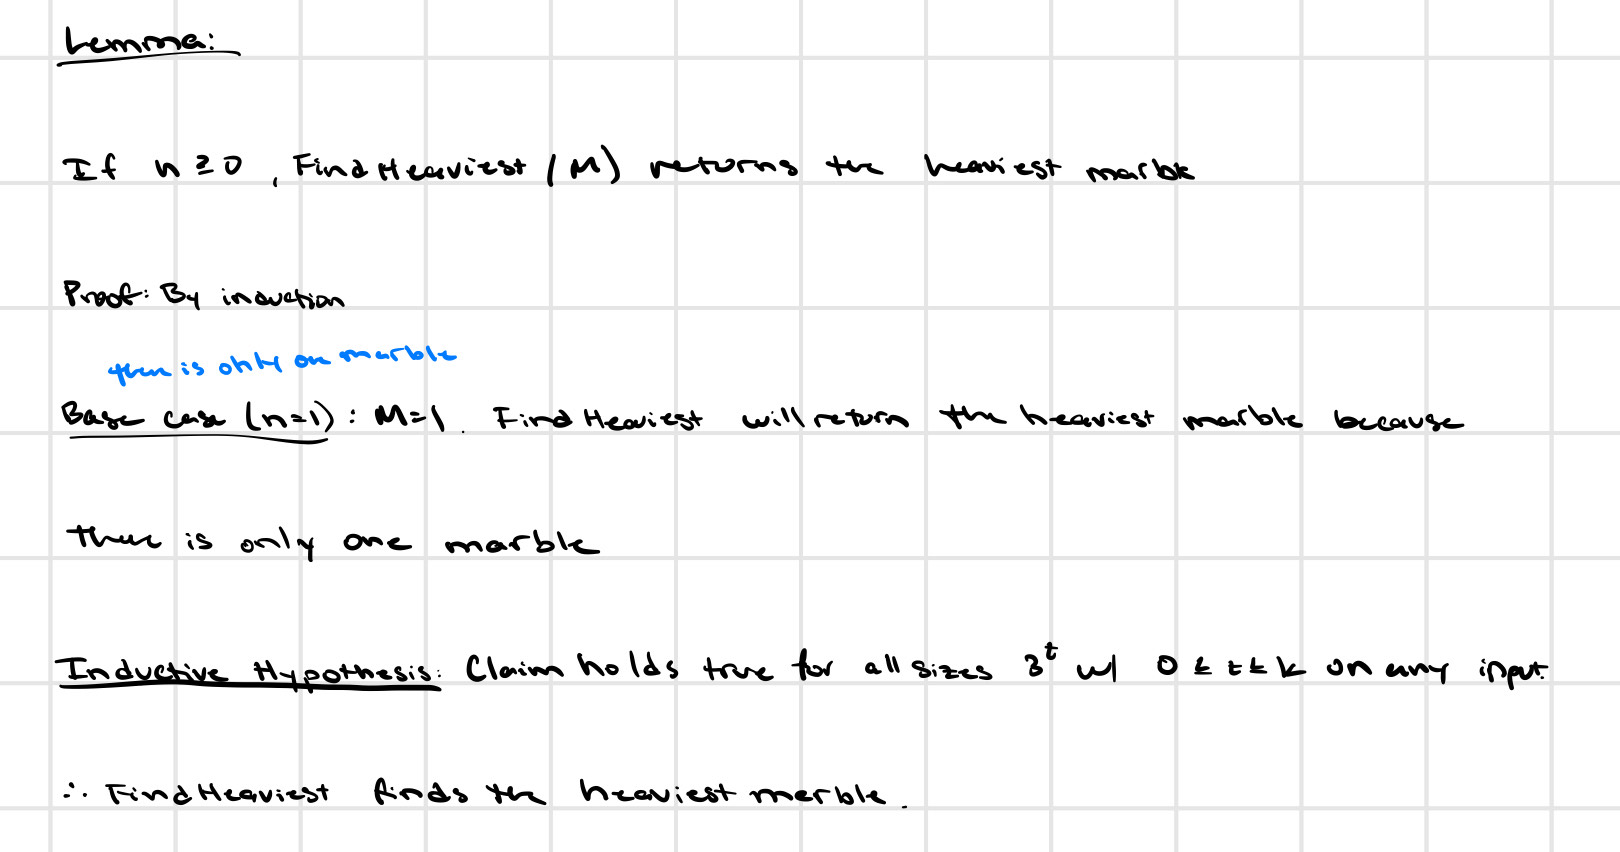 Lemma:
If n ≥ 0, FindHeaviest (M) returns the heaviest marble
Proof: By induction
there is only one marble
Base case (n=1): M=1. FindHeaviest will return the heaviest marble because
there is only one marble
Inductive Hypothesis: Claim holds true for all sizes 3^t w/ 0 ≤ t ≤ k on any input.
∴ FindHeaviest finds the heaviest marble.